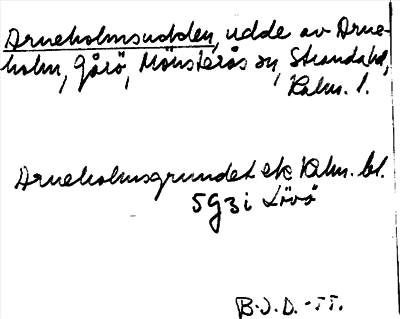 Arneholmsudden, udde av Arne-
holm, Gårö, Mönsterås sn, Stranda hd,
Kalm. l.
Arneholmsgrundet ek Kalm. bl.
5g3i Lövö
B.J.D. -55.